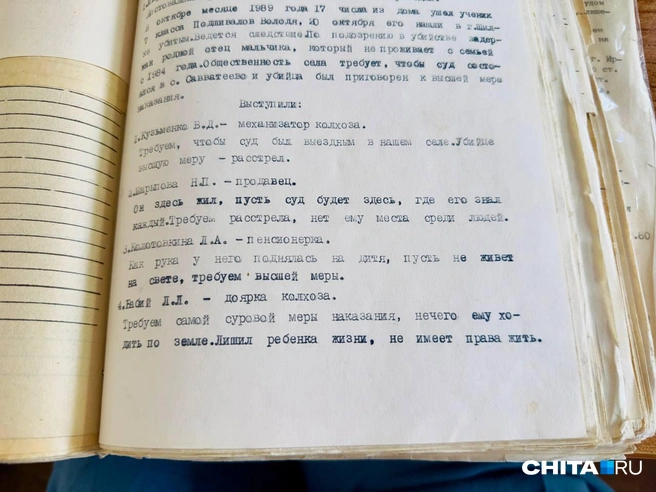 В октябре месяце 1989 года 17 числа из дома ушел ученик
7 класса Подшивалов Володя, 20 октября его нашли в г.Шил-
ке убитым.Ведется следствие.По подозрению в убийстве задер-
жан родной отец мальчика, который не проживает с семьей
с 1984 года.Общественность села требует, чтобы суд состо-
ялся в с. Савватеево и убийца был приговорен к высшей мере
наказания.
Выступили:
1.Кузьменко В.Д.- механизатор колхоза.
Требуем, чтобы суд был выездным в нашем селе.Убийце
высшую меру - расстрел.
2. Н.П. - продавец.
Он здесь жил, пусть суд будет здесь, где его знал
каждый.Требуем расстрела, нет ему места среди людей.
3.Колотовкина Л.А. - пенсионерка.
Как рука у него поднялась на дитя, пусть не живет
на свете, требуем высшей меры.
4.Бабий Л.Л. - доярка колхоза.
Требуем самой суровой меры наказания, нечего ему хо-
дить по земле.Лишил ребенка жизни, не имеет права жить.
CHITA.RU